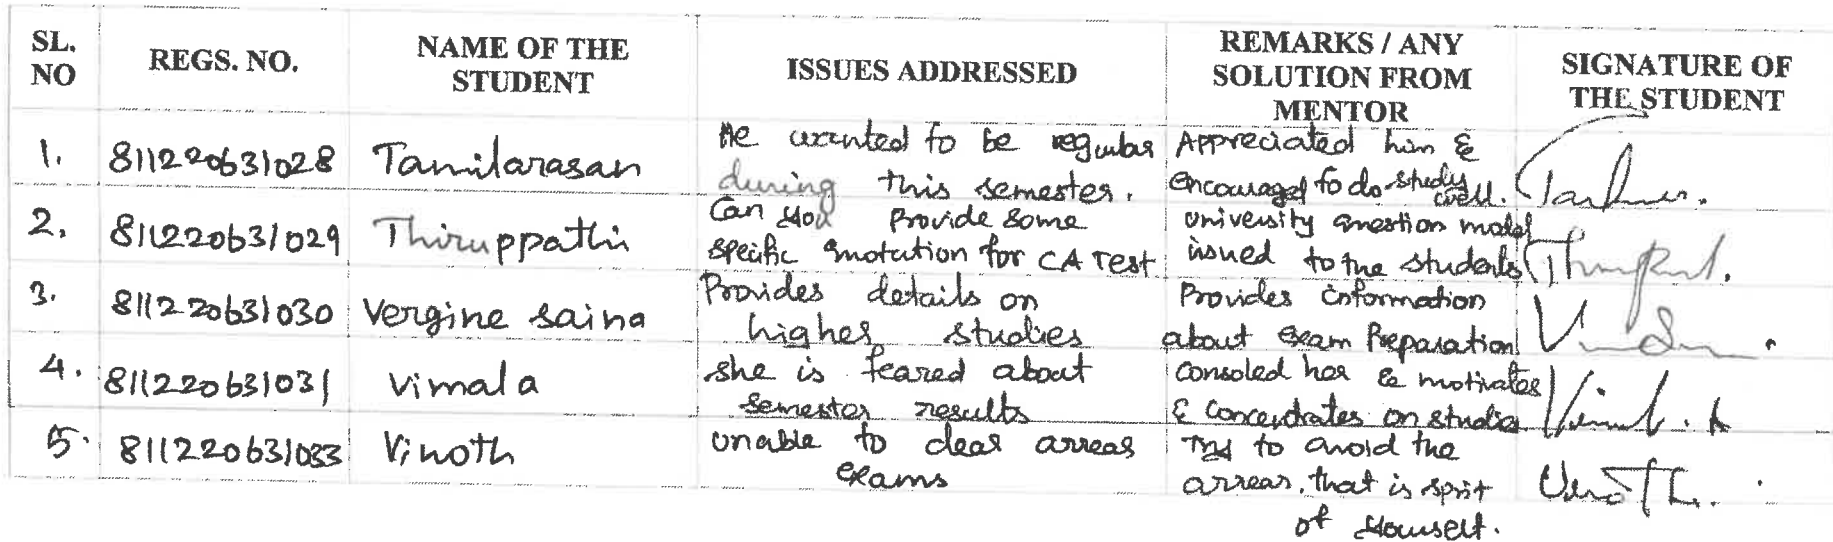 SL. NO
REGS. NO.
NAME OF THE STUDENT
ISSUES ADDRESSED
REMARKS / ANY SOLUTION FROM MENTOR
SIGNATURE OF THE STUDENT
1.
811220631028
Tamilarasan
He wanted to be regular
during this semester.
Appreciated him &
encouraged to do study
well.
2.
811220631029
Thiruppathi
Can you provide some
specific quotation for CA Test
university question model
issued to the students
3.
811220631030
Vergine saina
Provides details on
higher studies
Provides information
about exam Preparation
4.
811220631031
Vimala
she is feared about
semester results
consoled her & motivates
& concentrates on studies
5.
811220631033
Vinoth
unable to clear arrear
exams
Try to avoid the
arrear, that is
of yourself.
Vinoth.